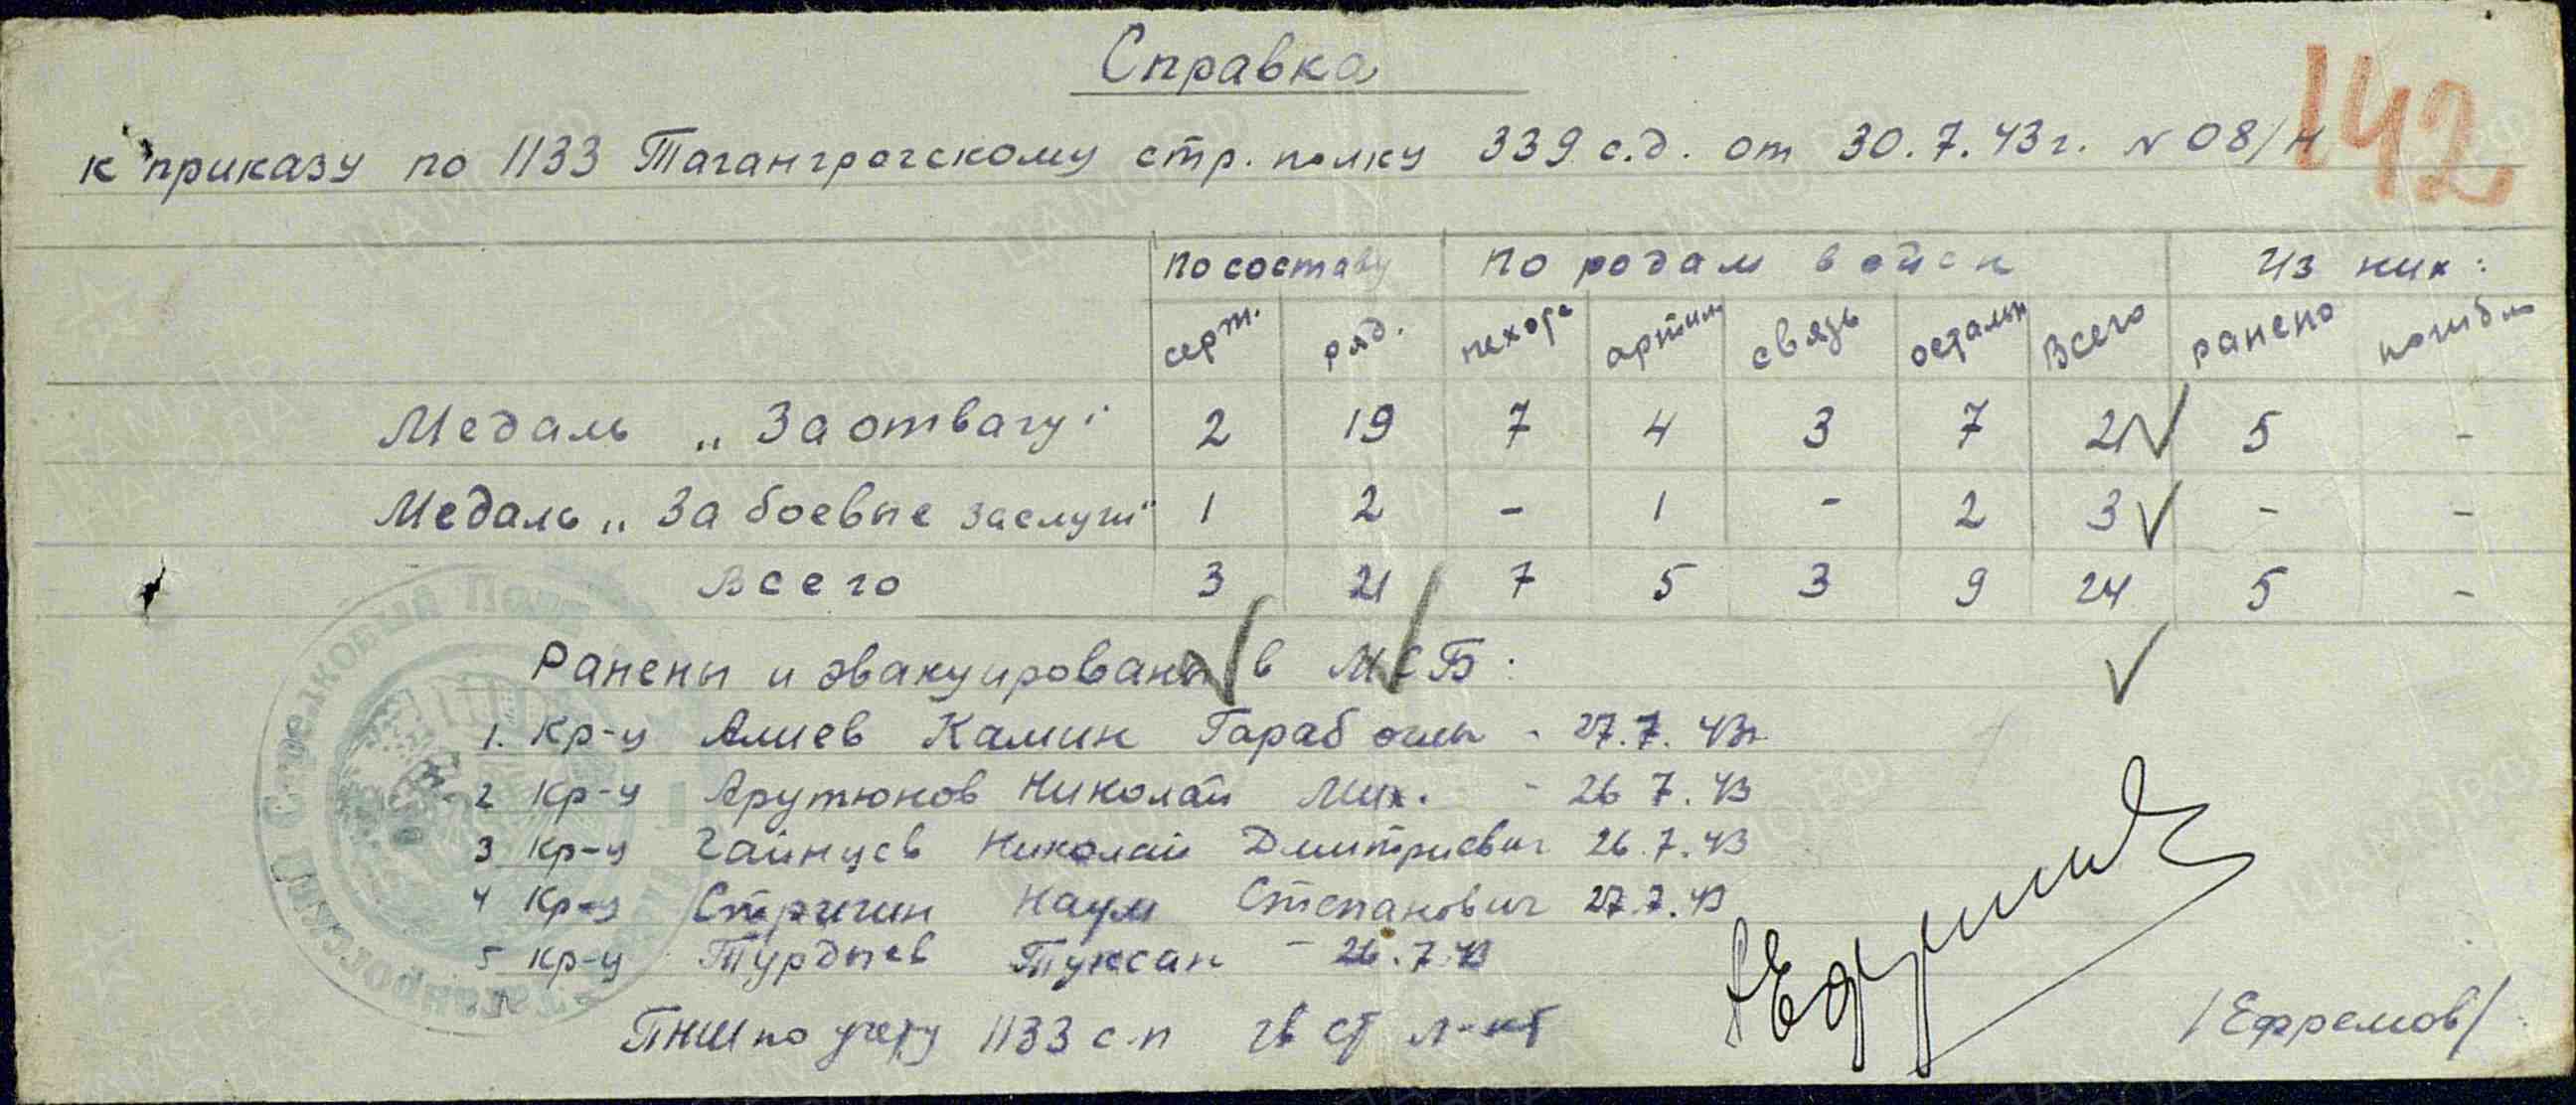 142
Справка
к приказу по 1133 Таганрогскому стр. полку 339 с.д. от 30.7.43г. № 08/н
по составу по родам войск Из них:
серж. ряд. пехота артил связь остальн Всего ранено погибло
Медаль „За отвагу" 2 19 7 4 3 7 21 5 -
Медаль „За боевые заслуги" 1 2 - 1 - 2 3 - -
Всего 3 21 7 5 3 9 24 5 -
Ранены и эвакуированы в МСБ:
1. Кр-ц Алиев Камин Гараб оглы - 27.7.43г.
2 Кр-ц Арутюнов Николай Мих. - 26 7.43
3 Кр-ц Николай Дмитриевич 26.7.43
4 Кр-ц Стригин Наум Степанович 27.7.43
5 Кр-ц Турдыев Туксан - 26.7.43
ПНШ по учету 1133 с.п гв ст л-нт /Ефремов/
Таганрогский Стрелковый Полк